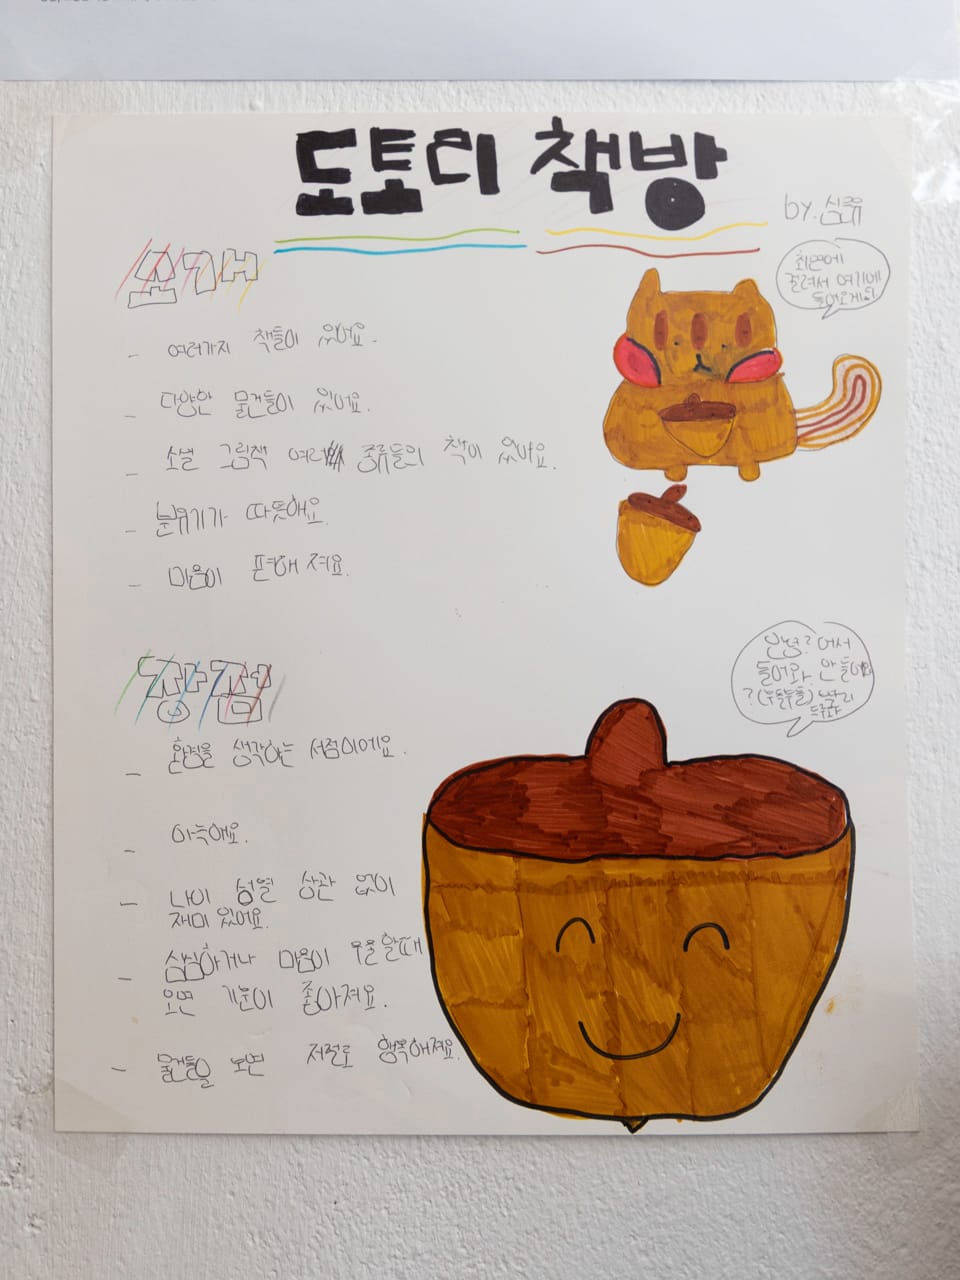 도토리 책방
by. 심류
소개
- 여러가지 책들이 있어요.
- 다양한 물건들이 있어요.
- 소설 그림책 여러 종류들의 책이 있어요.
- 분유기가 따뜻해요.
- 마음이 편해 져요.
들어오게
장점
- 환경을 생각하는 서점이에요.
- 아늑해요.
- 나이 성열 상관 없이
재미 있어요.
- 심심하거나 마음이 우울 할때
오면 기분이 좋아져요.
- 물건들을 보면 저절로 행복해져요.
안녕? 어서
들어와. 안 들어와
?(두둘두둘) 빨리